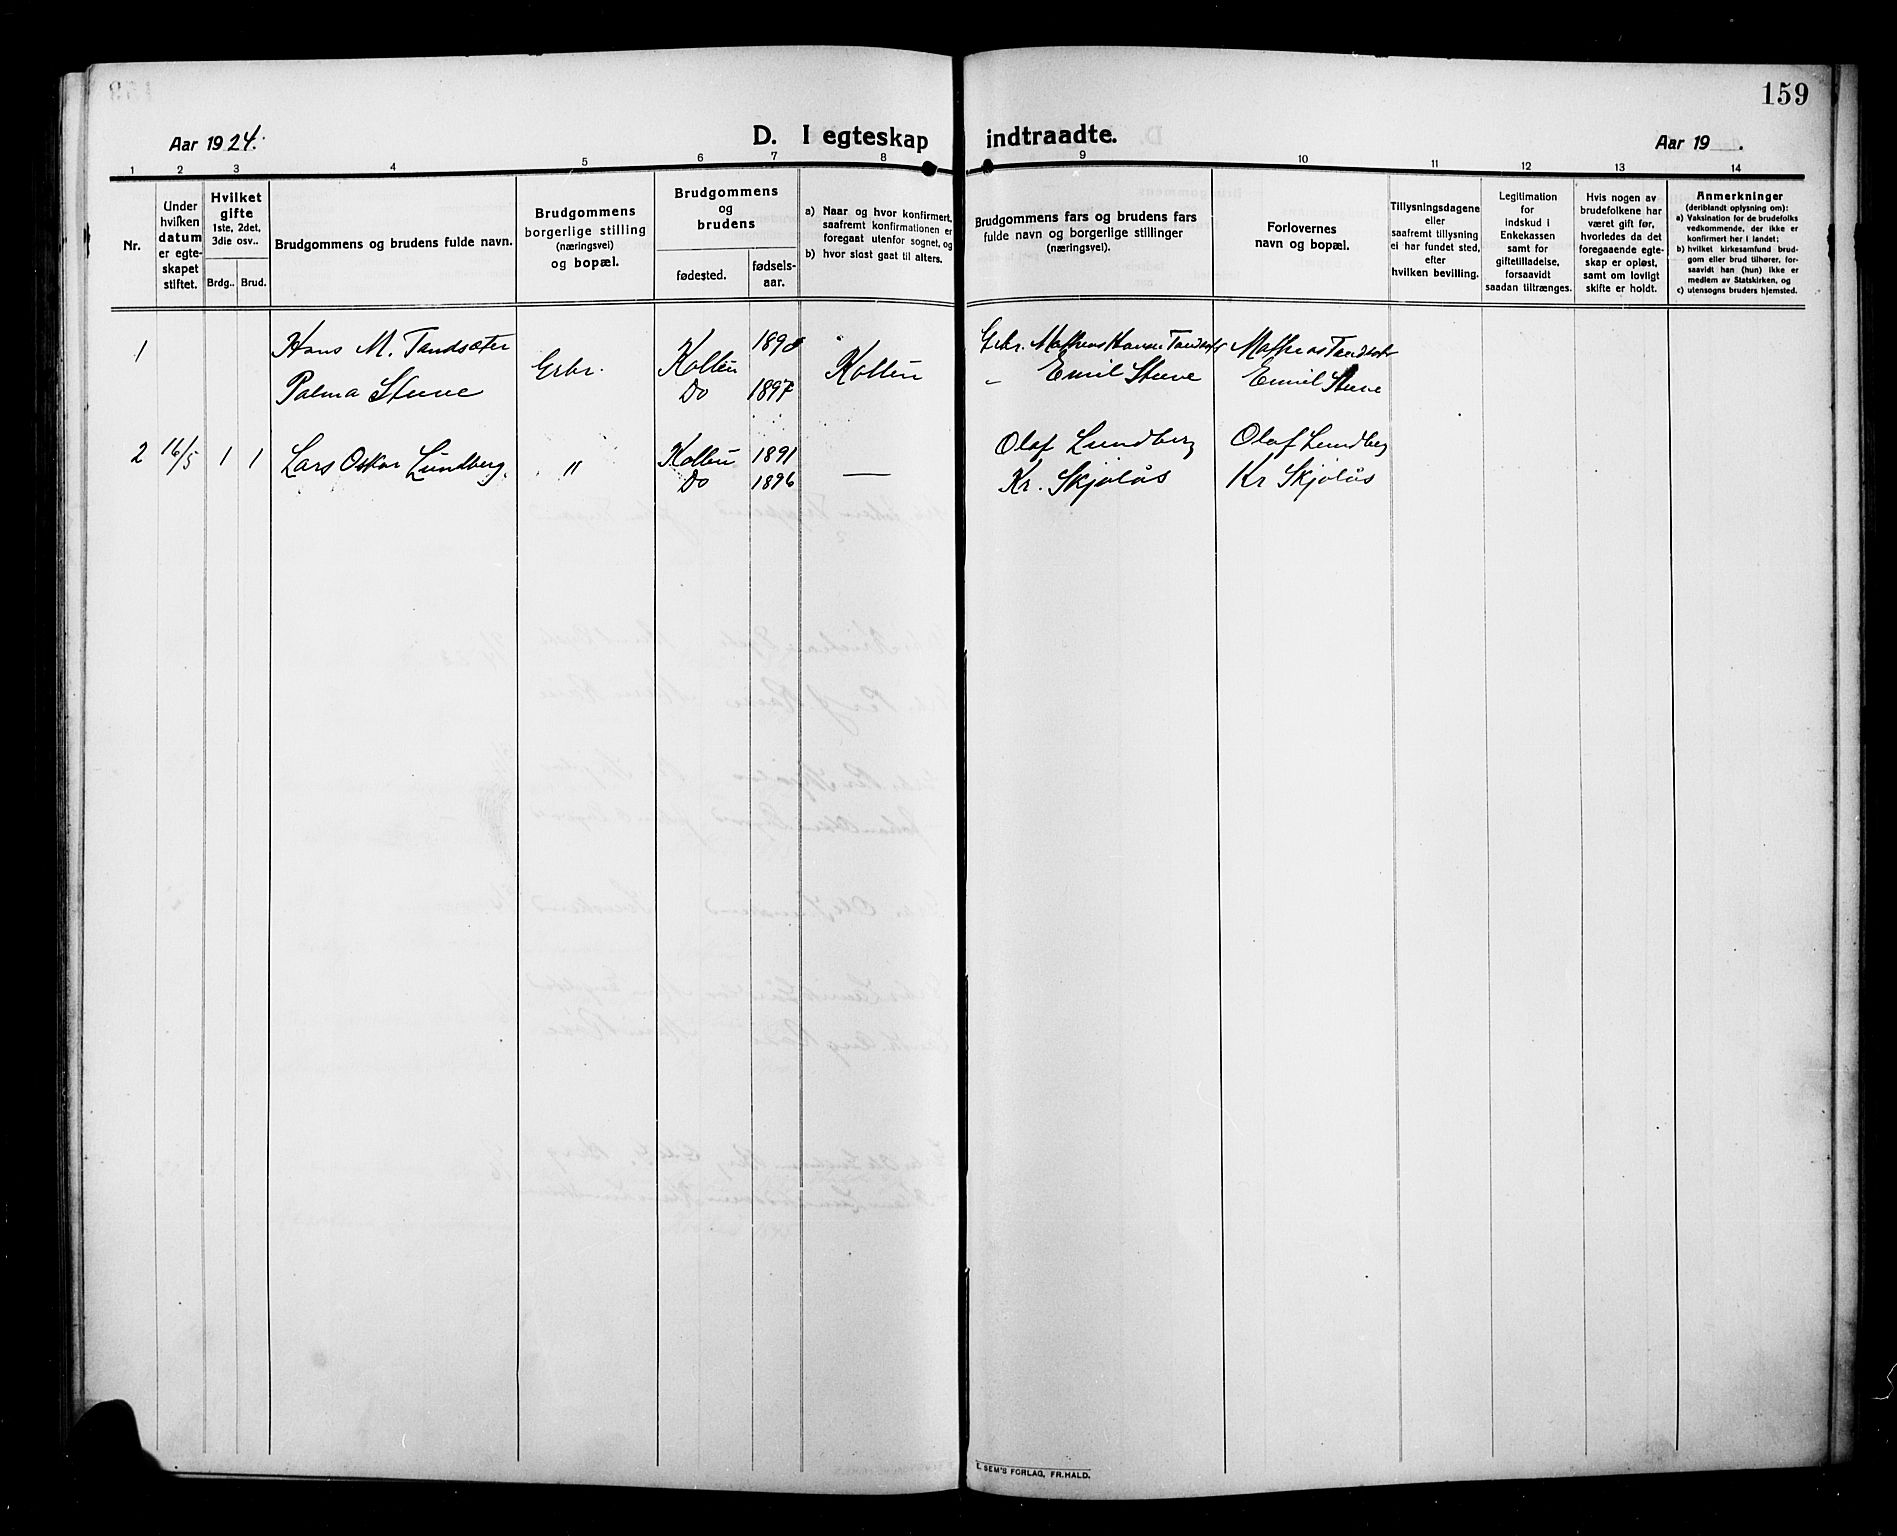 159
Aar 1924.
D. I egteskap indtraadte.
Aar 19 .
1 2 3 4 5 6 7 8 9 10 11 12 13 14
Nr.
Under hvilken datum er egteskapet stiftet.
Hvilket gifte
1ste, 2det, 3die osv..
Brdg.. Brud.
Brudgommens og brudens fulde navn.
Brudgommens borgerlige stilling
(næringsvei)
og bopæl.
Brudgommens og brudens
fødested.
fødsels-
aar.
a) Naar og hvor konfirmert,
saafremt konfirmationen er
foregaat utenfor sognet, og
b) hvor sidst gaat til alters.
Brudgommens fars og brudens fars
fulde navn og borgerlige stillinger
(næringsvei).
Forlovernes
navn og bopæl.
Tillysningsdagene
eller
saafremt tillysning
ei har fundet sted,
efter
hvilken bevilling.
Legitimation
for
indskud i
Enkekassen
samt for
giftetilladelse,
forsaavidt
saadan tiltrænges.
Hvis nogen av
brudefolkene har
været gift før,
hvorledes da det
foregaaende egte-
skap er opløst,
samt om lovligt
skifte er holdt.
Anmerkninger
(deriblandt oplysning om):
a) Vaksination for de brudefolks
vedkommende, der ikke er
konfirmert her i landet;
b) hvilket kirkesamfund brud-
gom eller brud tilhører, for-
saavidt han (hun) ikke er
medlem av Statskirken, og
c) utensogns bruders hjemsted.
1 Hans M. Tandsæter Grbr. Kolbu 1890 Kolbu Grbr. Mathias Hansen Tandsæter Mathias Tandsæter
Palma Stuve Do 1897 - Emil Stuve Emil Stuve
2 16/5 1 1 Lars Oskar Lundberg. " Kolbu 1891 — Olaf Lundberg Olaf Lundberg
Do 1896 Kr. Skjølås Kr Skjølås
E. SEM'S FORLAG, FR.HALD.